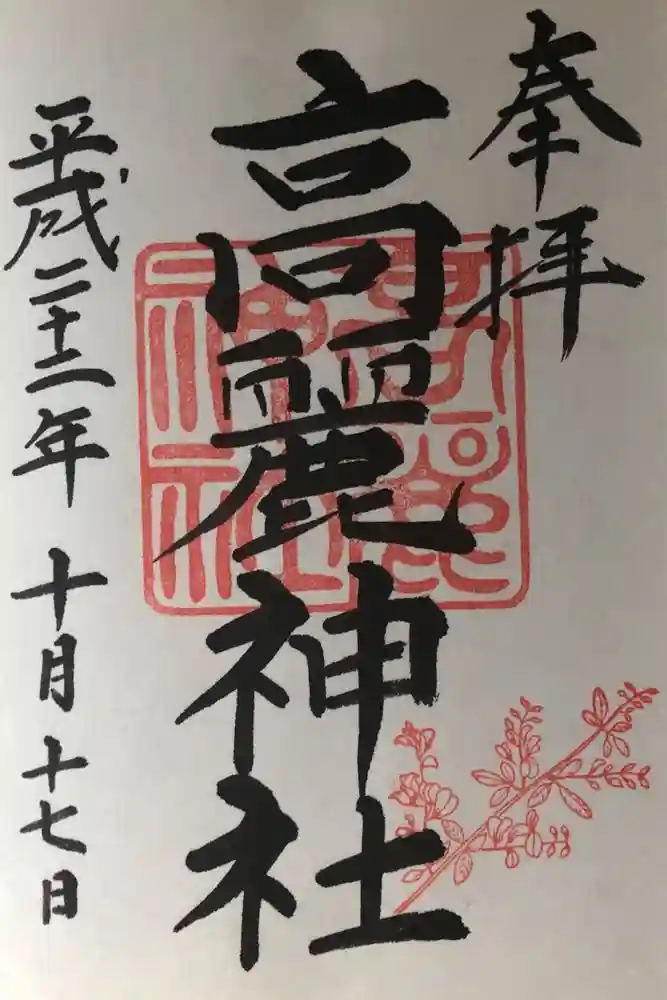 奉拝
高麗神社
高麗神社
平成二十二年十月十七日